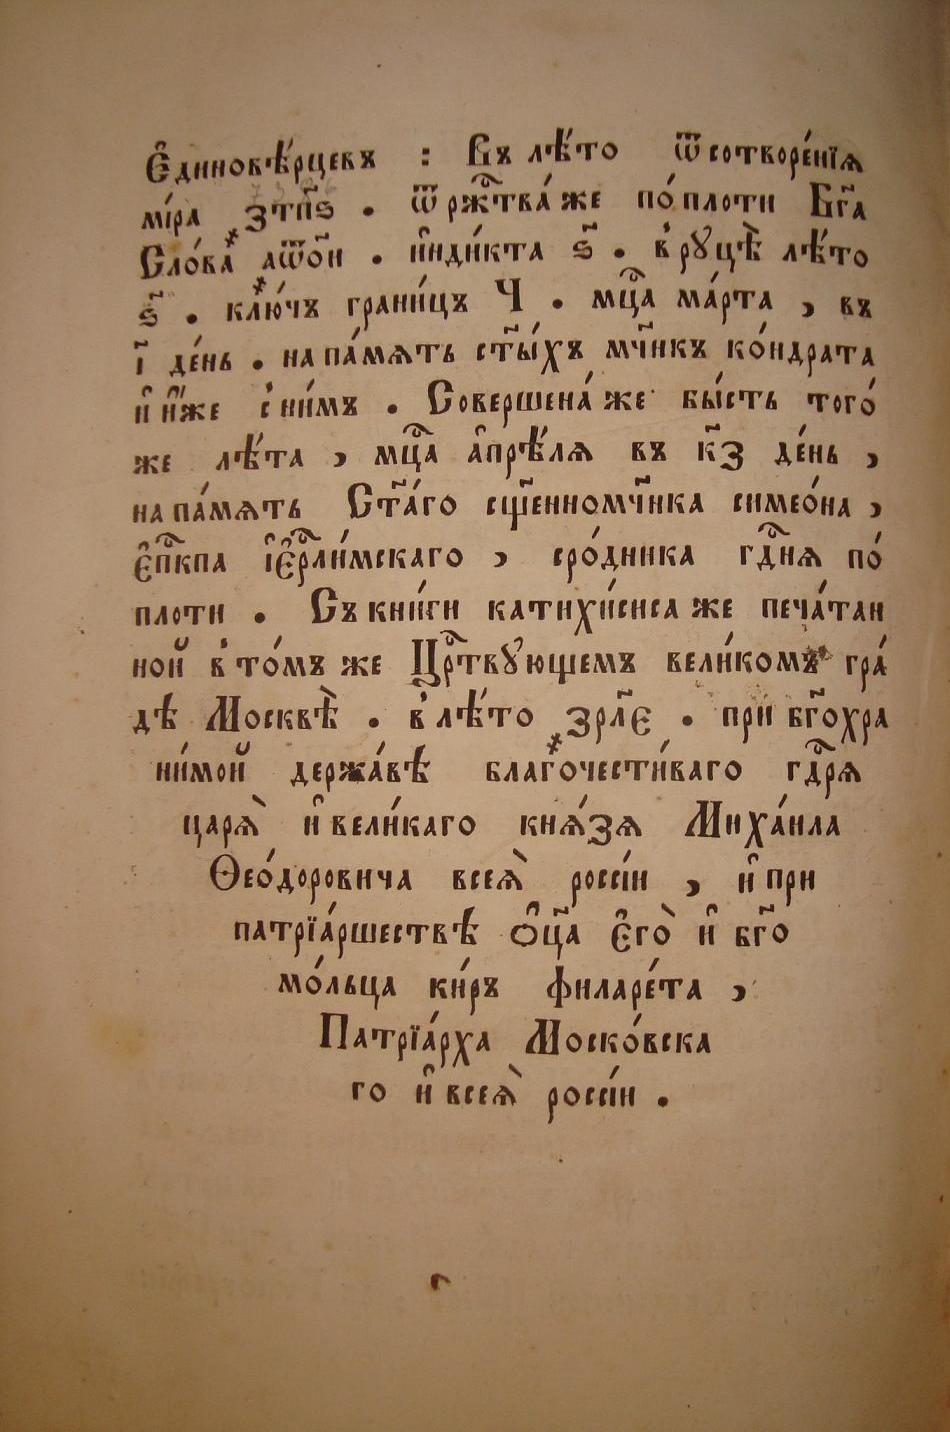 Є҆динове́рцевъ : Въ лѣ́то ѿ сотворе́нїѧ
мі́ра ҂зтп҃ѕ . ѿ ржⷭ҇тва́ же по́ плоти Бг҃а
Сло́ва ҂аѿо҃и . и҆нді́кта ѕ҃ . в̾ рꙋцѣ̀ лѣ́то
ѕ҃ . клю́чъ грани́цъ Ч . мцⷭ҇а ма́рта , въ
і҃ де́нь . на па́мѧть ст҃ы́хъ мч҃никъ ко́ндрата
и҆ и҆̀же с̾ ни́мъ . Соверше́на же бы́сть того́
же лѣ́та , мцⷭ҇а а҆прѣ́лѧ въ к҃з де́нь ,
на па́мѧть Ст҃а́го сщ҃енномч҃ника симео́на ,
є҆пⷭ҇кпа і҆є҆рⷭ҇ли́мскаго , сро́дника гдⷭ҇нѧ по́
плоти . Съ кни́ги катихи́сиса же печа́тан
ной в̾ то́мъ же Црⷭ҇твꙋющемъ вели́комъ гра́
дѣ Москвѣ̀ . в̾ лѣ́то ҂зрл҃є . при бг҃охра
ни́мой держа́вѣ благочести́ваго гдⷭ҇рѧ
царѧ̀ и҆ вели́каго кнѧ́зѧ Миха́ила
Ѳео́доровича всеѧ̀ россі́и , и҆ при
патрїа́ршествѣ ѻ҆ц҃а є҆гѡ̀ и҆ бг҃о
мо́льца ки́ръ филаре́та ,
Патрїа́рха Моско́вска
го и҆ всеѧ̀ россі́и .